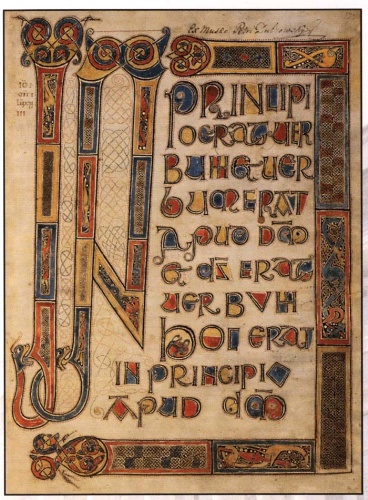 Ex Museo Petri Dubrowsky
IN PRINCIPI
O ERAT UER
BUM ET UER
BUM ERAT
APUD DM̄
ET DS̄ ERAT
UERBUM
HOC ERAT
IN PRINCIPIO
APUD DM̄